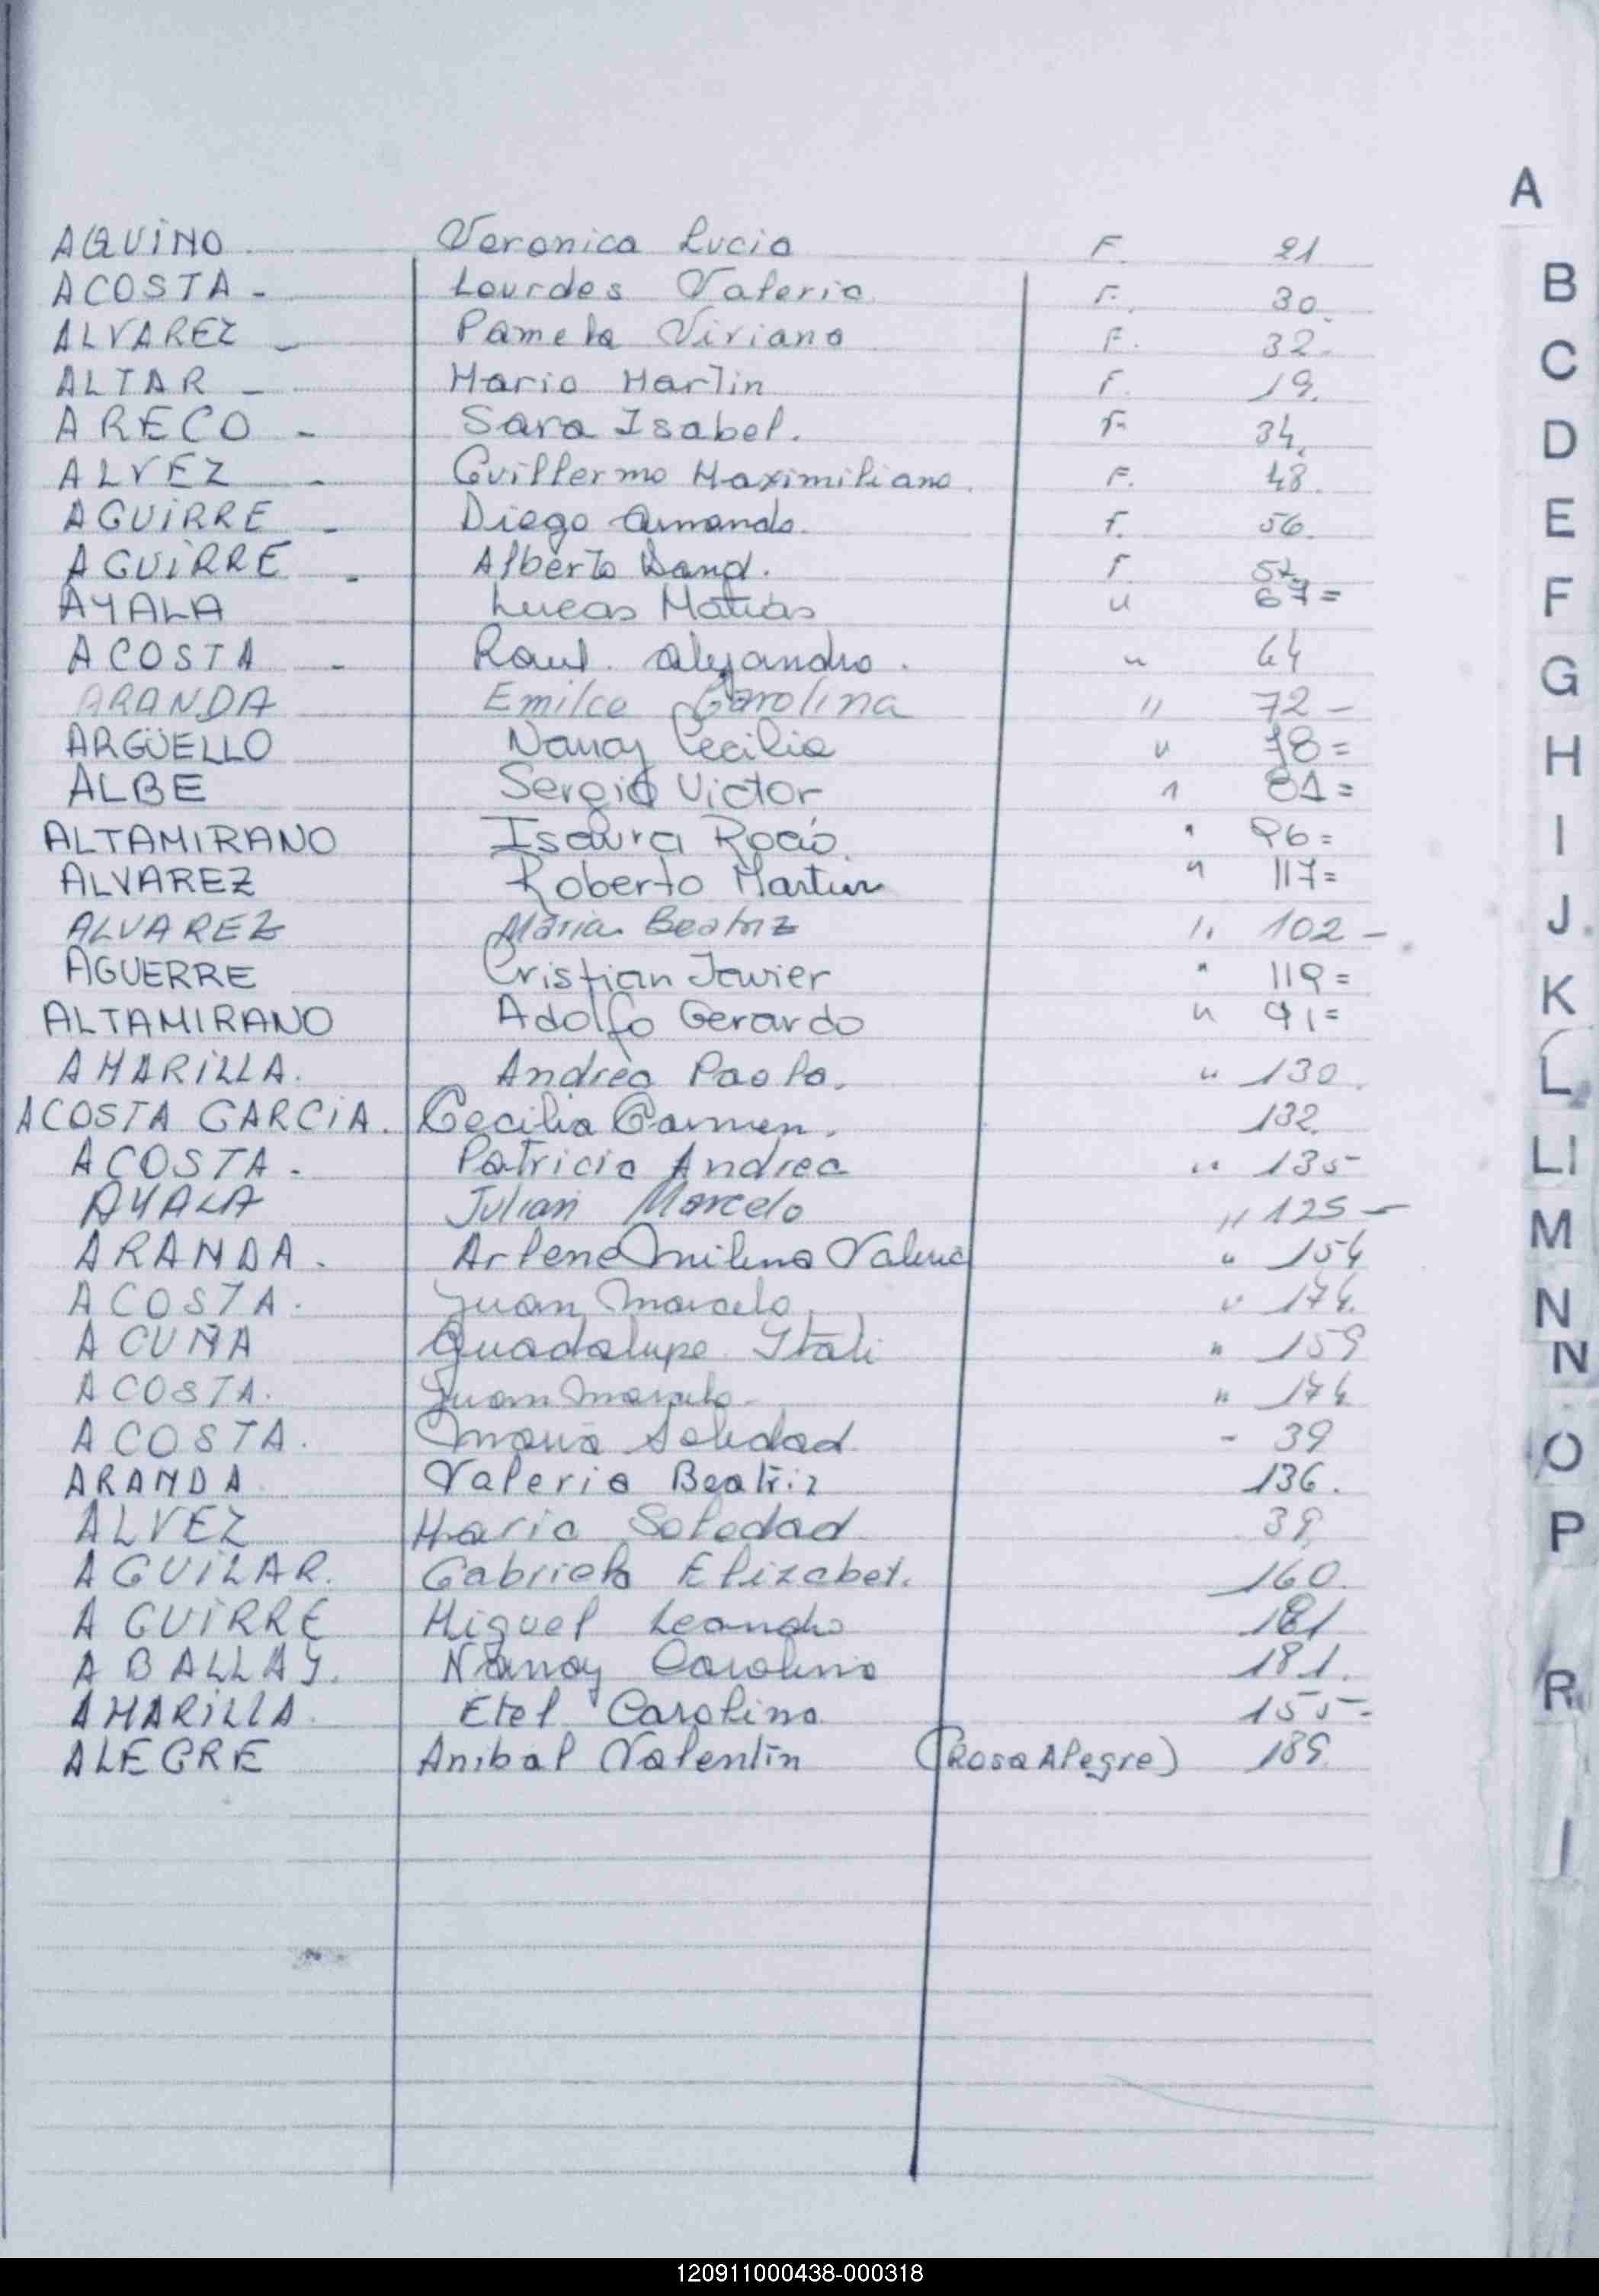 A
AQUINO Veronica Lucia F. 21
ACOSTA - Lourdes Valeria F. 30.
ALVAREZ - Pamela Viviana F. 32.
ALTAR - Mario Martin F. 19.
ARECO - Sara Isabel. F. 34.
ALVEZ - Guillermo Maximiliano. F. 48.
AGUIRRE - Diego Armando. F. 56.
AGUIRRE - Alberto David. F. 57
AYALA Lucas Matías " 67=
ACOSTA - Raul. Alejandro. " 64
ARANDA Emilce Carolina " 72-
ARGÜELLO Nancy Cecilia " 78=
ALBE Sergio Victor " 81=
ALTAMIRANO Isaura Rocío. " 96=
ALVAREZ Roberto Martin " 117=
ALVAREZ María Beatriz " 102-
AGUERRE Cristian Javier " 119=
ALTAMIRANO Adolfo Gerardo " 91=
AMARILLA. Andrea Paola. " 130.
ACOSTA GARCIA. Cecilia Carmen. 132.
ACOSTA. Patricia Andrea " 135
AYALA Julian Marcelo " 125-
ARANDA. Arlene Milena Valeria " 154
ACOSTA. Juan Marcelo. " 174.
ACUÑA Guadalupe Itati " 159
ACOSTA. Juan Marcelo " 174
ACOSTA. Maria Soledad - 39
ARANDA Valeria Beatriz 136.
ALVEZ Maria Soledad 39.
AGUILAR. Gabriela Elizabet. 160.
AGUIRRE Miguel Leandro 181
ABALLAY. Nancy Carolina 181.
AMARILLA. Etel Carolina 155-
ALEGRE Anibal Valentin (Rosa Alegre) 189.
B
C
D
E
F
G
H
I
J
K
L
Ll
M
N
N
O
P
R
120911000438-000318